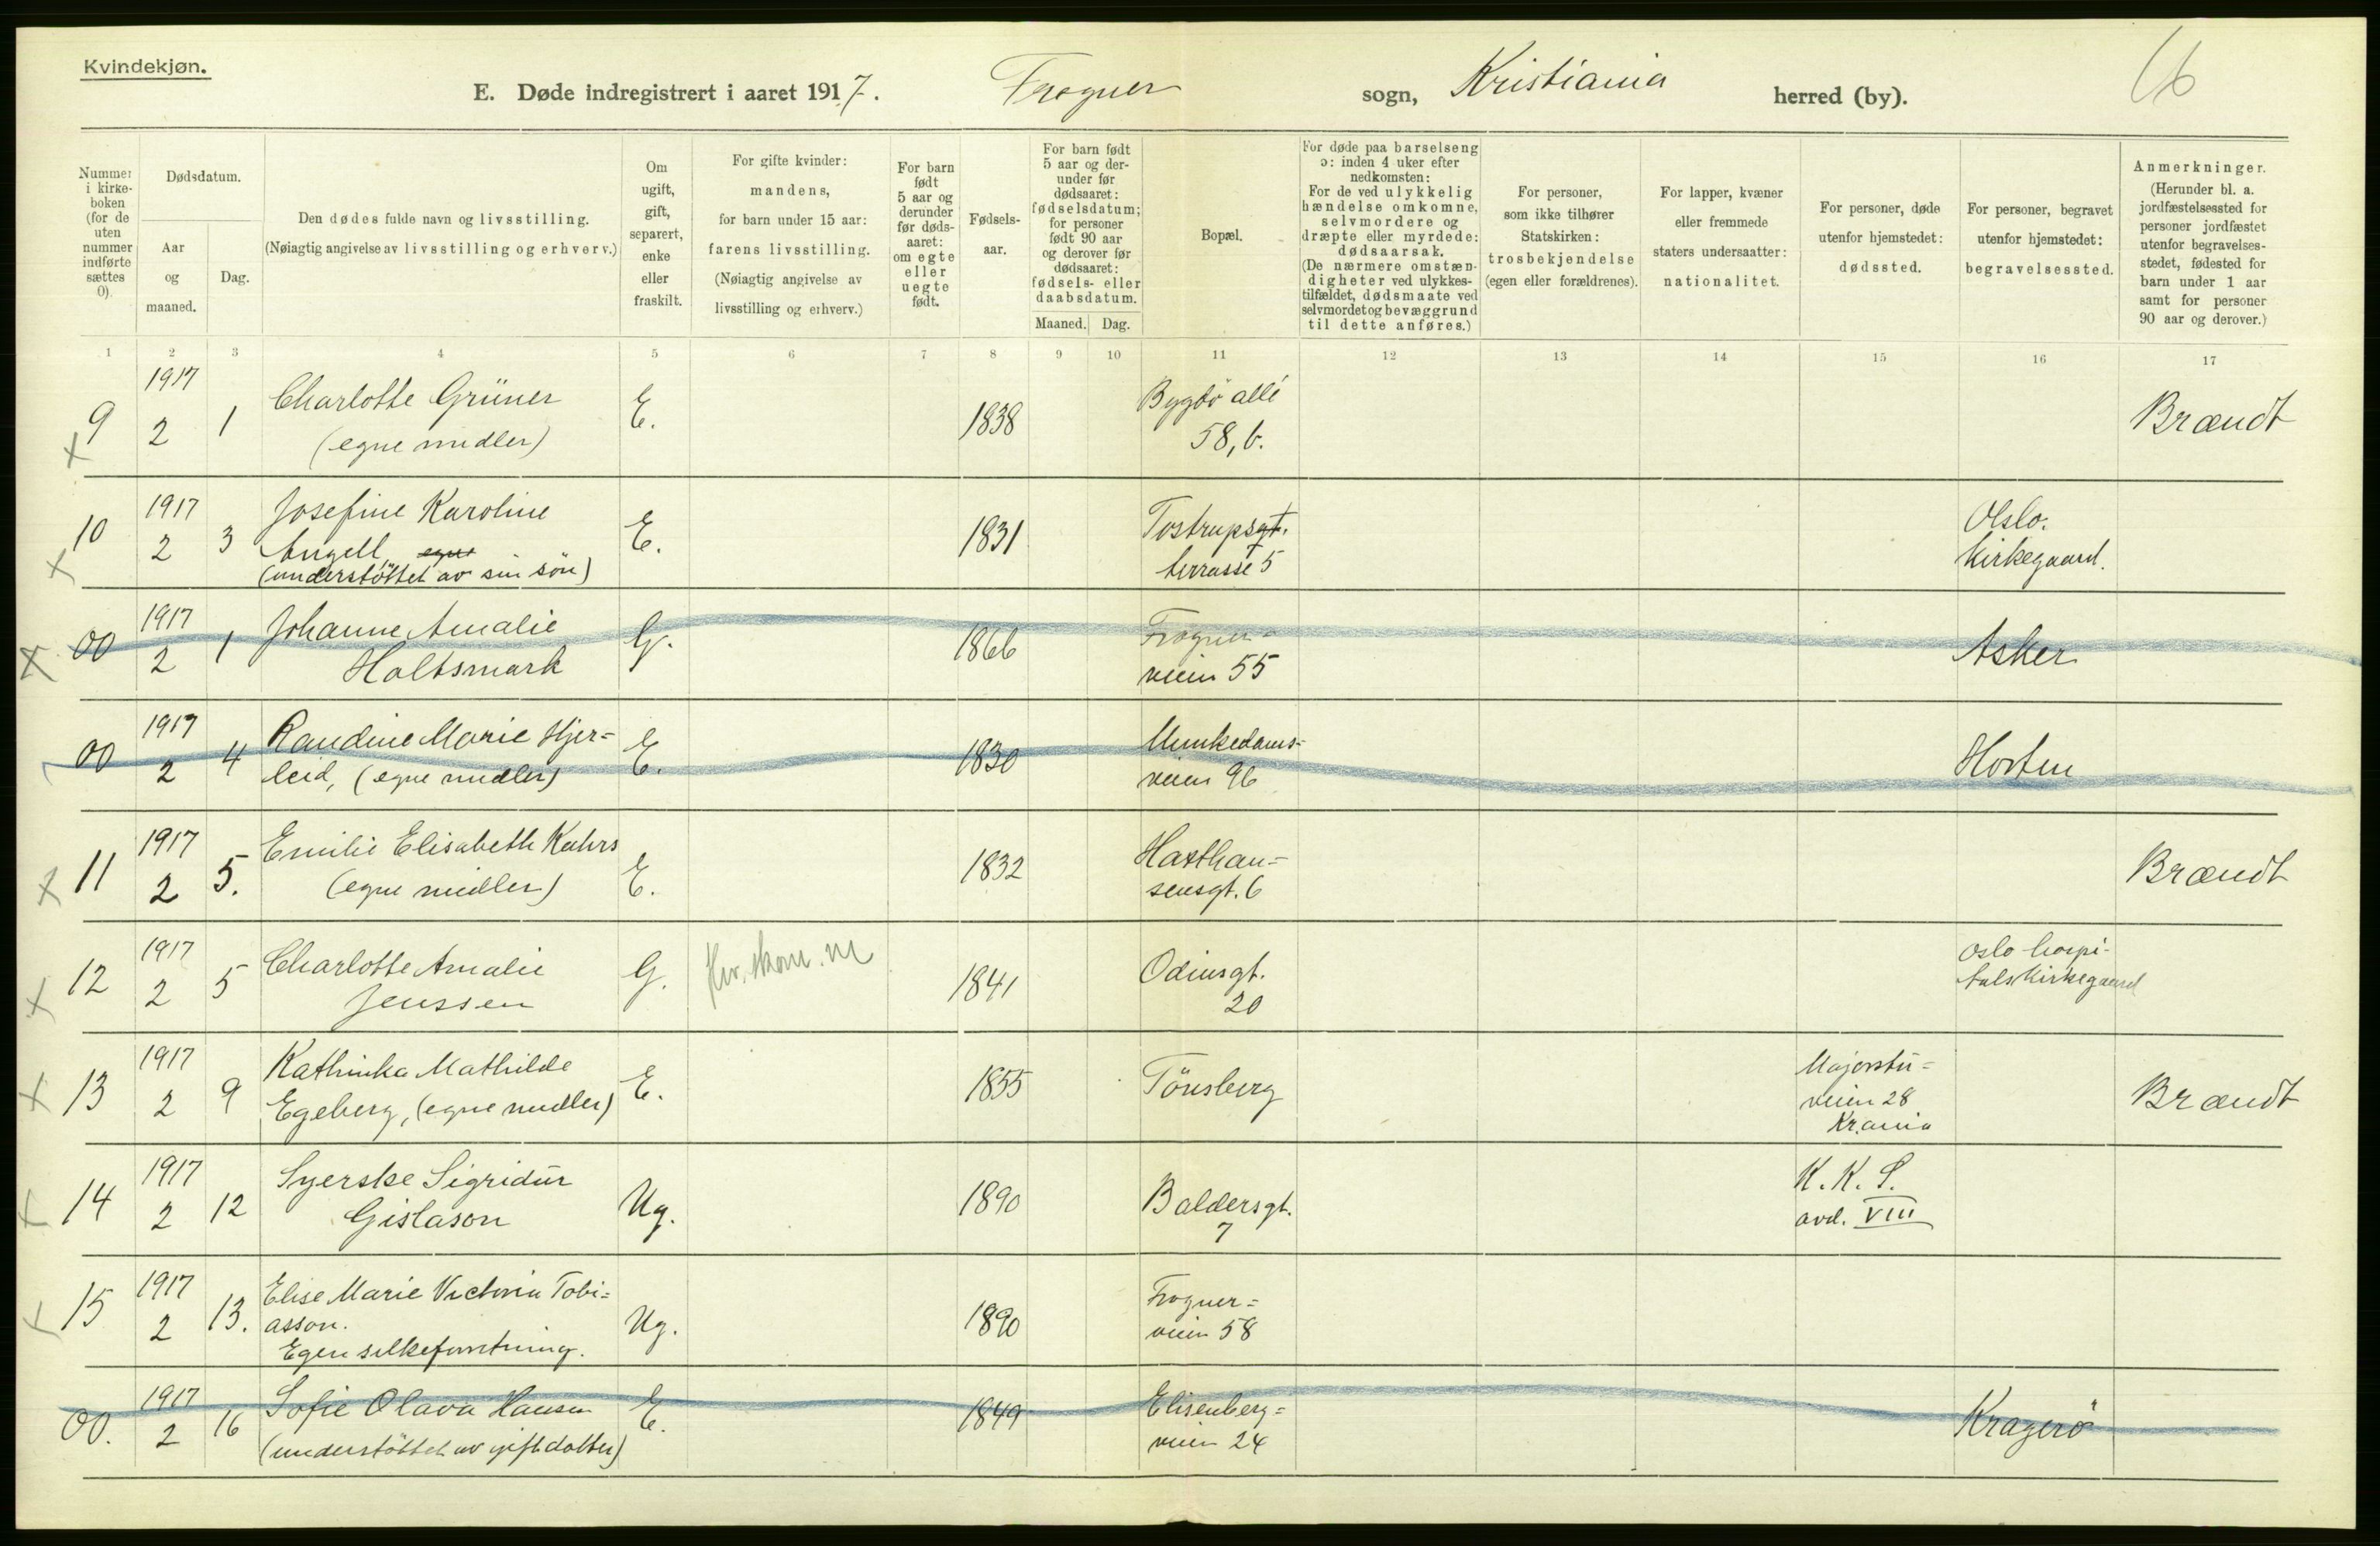 Kvindekjøn.
E. Døde indregistrert i aaret 1917. Frogner sogn, Kristiania herred (by).
Nummer i kirke-boken (for de uten nummer indførte sættes 0).
Dødsdatum.
Aar og maaned.
Dag.
Den dødes fulde navn og livsstilling.
(Nøiagtig angivelse av livsstilling og erhverv.)
Om ugift, gift, separert, enke eller fraskilt.
For gifte kvinder:
mandens,
for barn under 15 aar:
farens livsstilling.
(Nøiagtig angivelse av
livsstilling og erhverv.)
For barn født 5 aar og derunder før døds-aaret: om egte eller uegte født.
Fødsels-aar.
For barn født 5 aar og der-under før dødsaaret: fødselsdatum; for personer født 90 aar og derover før dødsaaret: fødsels- eller daabsdatum.
Maaned. Dag.
Bopæl.
For døde paa barselseng
ɔ: inden 4 uker efter
nedkomsten:
For de ved ulykkelig
hændelse omkomne,
selvmordere og
dræpte eller myrdede:
dødsaarsak.
(De nærmere omstæn-
digheter ved ulykkes-
tilfældet, dødsmaate ved
selvmordet og bevæggrund
til dette anføres.)
For personer,
som ikke tilhører
Statskirken:
trosbekjendelse
(egen eller forældrenes).
For lapper, kvæner
eller fremmede
staters undersaatter:
nationalitet.
For personer, døde
utenfor hjemstedet:
dødssted.
For personer, begravet
utenfor hjemstedet:
begravelsessted.
Anmerkninger.
(Herunder bl. a.
jordfæstelsessted for
personer jordfæstet
utenfor begravelses-
stedet, fødested for
barn under 1 aar
samt for personer
90 aar og derover.)
1 2 3 4 5 6 7 8 9 10 11 12 13 14 15 16 17
9 1917 2 1 Charlotte Grüner (egne midler) E. 1838 Bygdö allé 58, b. Brandt
10 1917 2 3 Josefine Karoline Angell, egne (understöttet av sin sön) E. 1831 Tostrupsgt. terrasse 5 Oslo. Kirkegaard.
00 1917 2 1 Johanne Amalie Holtsmark G. 1866 Frogner= veien 55 Asker
00 1917 2 4 Randine Marie Hjer= leid, (egne midler) E. 1830 Munkedams- veien 96 Horten
11 1917 2 5. Emilie Elisabeth Kahrs (egne midler) E. 1832 Haxthau= sensgt. 6 Brandt
12 1917 2 5 Charlotte Amalie Jenssen G. 1841 Odinsgt. 20 Oslo hospi- tals Kirkegaard
13 1917 2 9 Kathinka Mathilde Egeberg, (egne midler) E. 1855 Tönsberg Majorstu= veien 28 Kr.ania Brandt
14 1917 2 12 Syerske Sigridur Gislason Ug. 1890 Baldersgt. 7 K. K. S. avd. VIII
15 1917 2 13. Elise Marie Victoria Tobi= asson. Egen silkeforretning. Ug. 1890 Frogner= veien 58
00. 1917 2 16 Sofie Olava Hansen (understöttet av gift datter) E. 1849 Elisenberg= veien 24 Kragerö